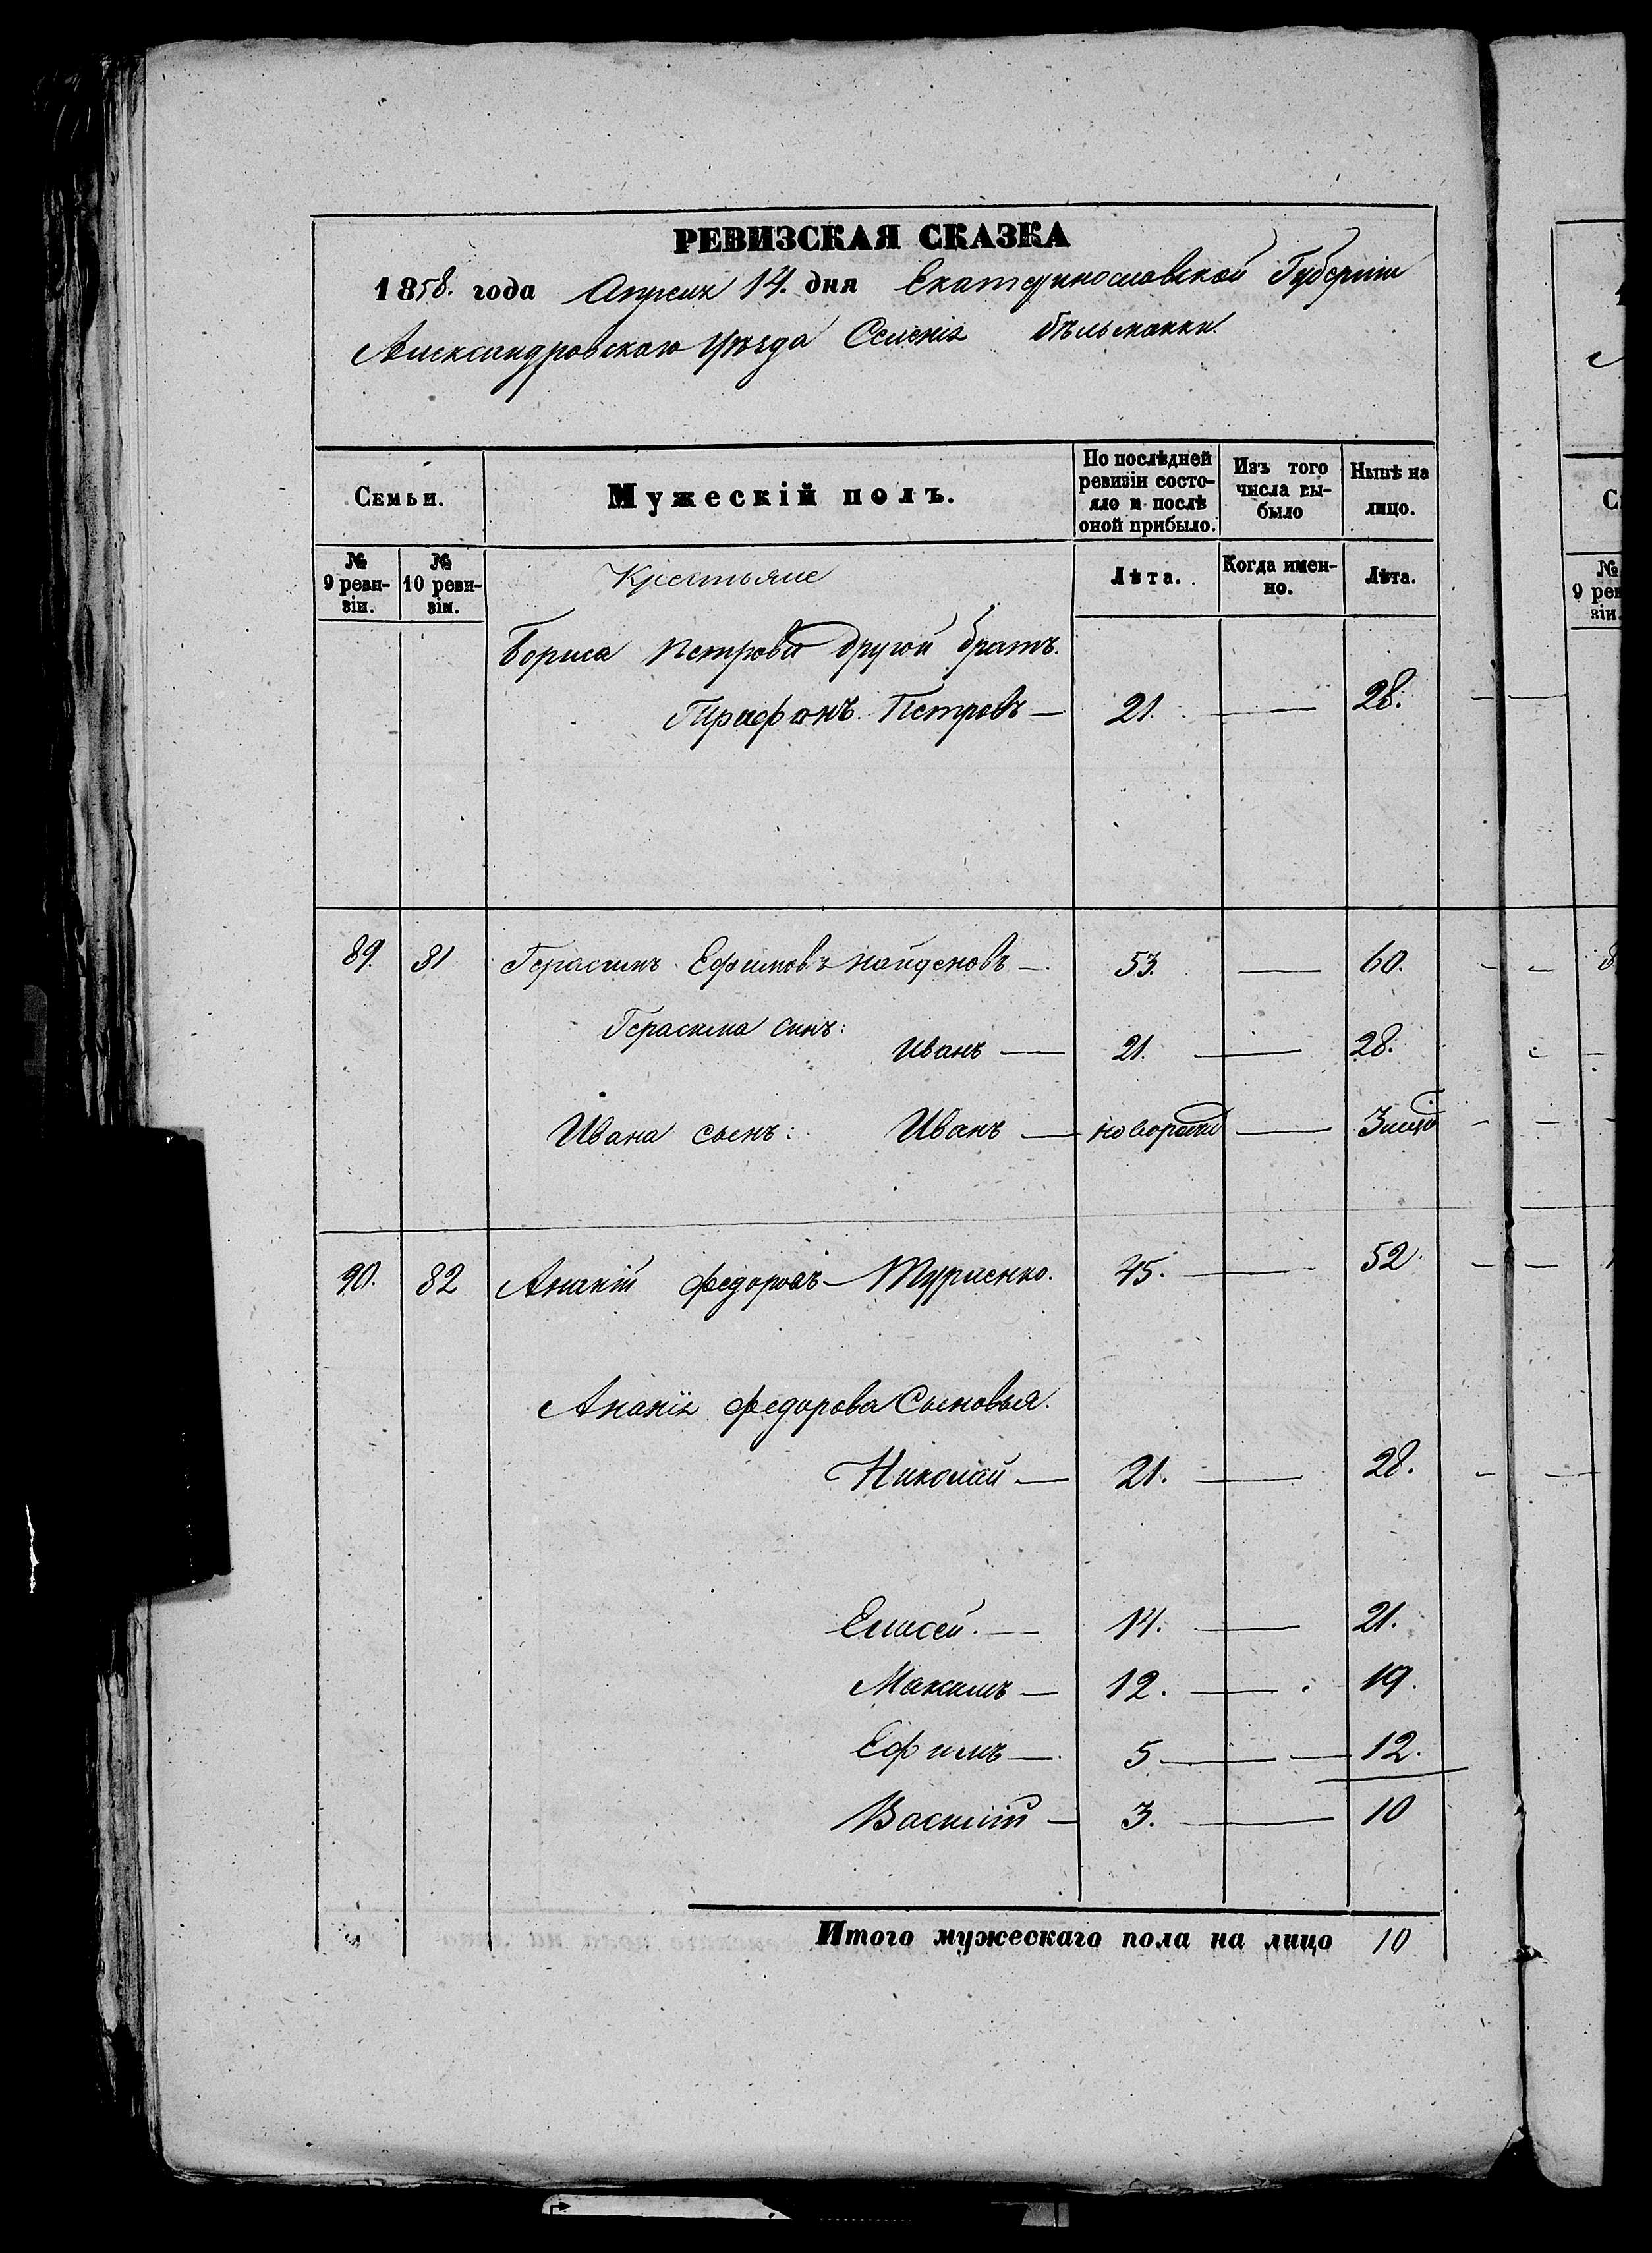 РЕВИЗСКАЯ СКАЗКА
1858. года Апреля 14. дня Екатеринославской Губерніи
Александровскаго Уѣзда Селенія Бѣльманки
Семьи.
Мужескій полъ.
По послѣдней ревизіи состояло и послѣ оной прибыло.
Изъ того числа выбыло
Нынѣ на лицо.
№ 9 ревизіи.
№ 10 ревизіи.
Крестьяне
Лѣта.
Когда именно.
Лѣта.
Бориса Петрова другой братъ.
Трифонъ Петровъ — 21. — 28.
89. 81 Герасимъ Ефимовъ Найденовъ — 53. — 60.
Герасима синъ:
Иванъ — 21. — 28.
Ивана сынъ: Иванъ — новорож —
90. 82 Ананій Федоровъ — 45. — 52
Ананія Федорова Сыновья.
Николай — 21. — 28.
Елисей. — 14. — 21.
Максимъ — 12. — 19.
Ефимъ — 5 — 12.
Василій — 3. — 10
Итого мужескаго пола на лицо 10
№ 9 рев
зіи.